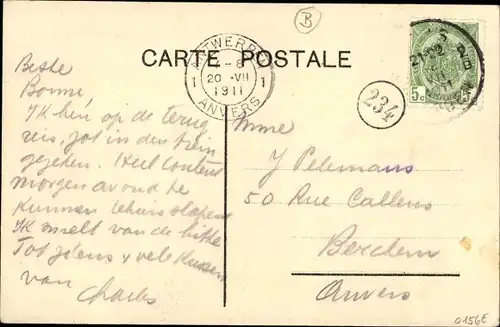 B
CARTE POSTALE
ANTWERPEN
20 - VII
1 1
1911
ANVERS
5c
234
Beste
Bonne
Ik ben op de terug
reis, in den trein
gezeten. Heel content
morgen avond te
kunnen thuis slapen
Ik smelt van de hitte
Tot ziens & vele kussen
van
Charles
Mme
J Pelemans
50 Rue Callens
Berchem
Anvers
0156E